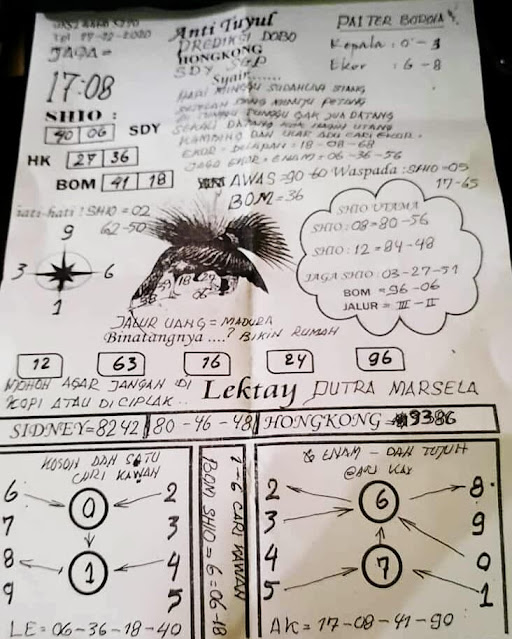 Tgl 17-02-2020
Anti Tuyul
PAITER BORONA
JAGA =
PREDIKSI DOBO
HONGKONG
Kepala : 0 - 3
SDY SGP
Ekor : 6 - 8
17:08
Syair.......
HARI MINGGU SUDAHLAH SIANG
SHIO :
40 06 SDY
DI TUNGGU TUNGGU GAK JUA DATANG
HK 27 36
KAMBING DAN ULAR ADU CARI EKOR.
EKOR = DELAPAN : 18 - 08 - 68
JAGA EKOR = ENAM = 06-36-56
BOM 41 18
AWAS = 90-60 Waspada : SHIO = 05
17-65
BOM = 36
Hati-hati : SHIO = 02
62-50
9
3 6
1
SHIO UTAMA
SHIO : 08 = 80-56
SHIO : 12 = 84-48
JAGA SHIO : 03-27-51
BOM = 96-06
JALUR = III - II
18 27
06
JALUR UANG = MADURA
Binatangnya ....? BIKIN RUMAH
12 63 16 24 96
MOHON AGAR JANGAN DI
KOPI ATAU DICIPLAK..
Lektay PUTRA MARSELA
SIDNEY = 8242 80 - 46 - 48 HONGKONG = 9386
KOSONG DAN SATU
CARI KAWAN
6 0 2
7 3
8 1 4
9 5
LE = 06-36-18-40
1-6 CARI KAWAN
BOM SHIO = 6 = 06-18
ENAM - DAN TUJUH
2 6 8
3 9
4 7 0
5 1
AK = 17-08-41-90